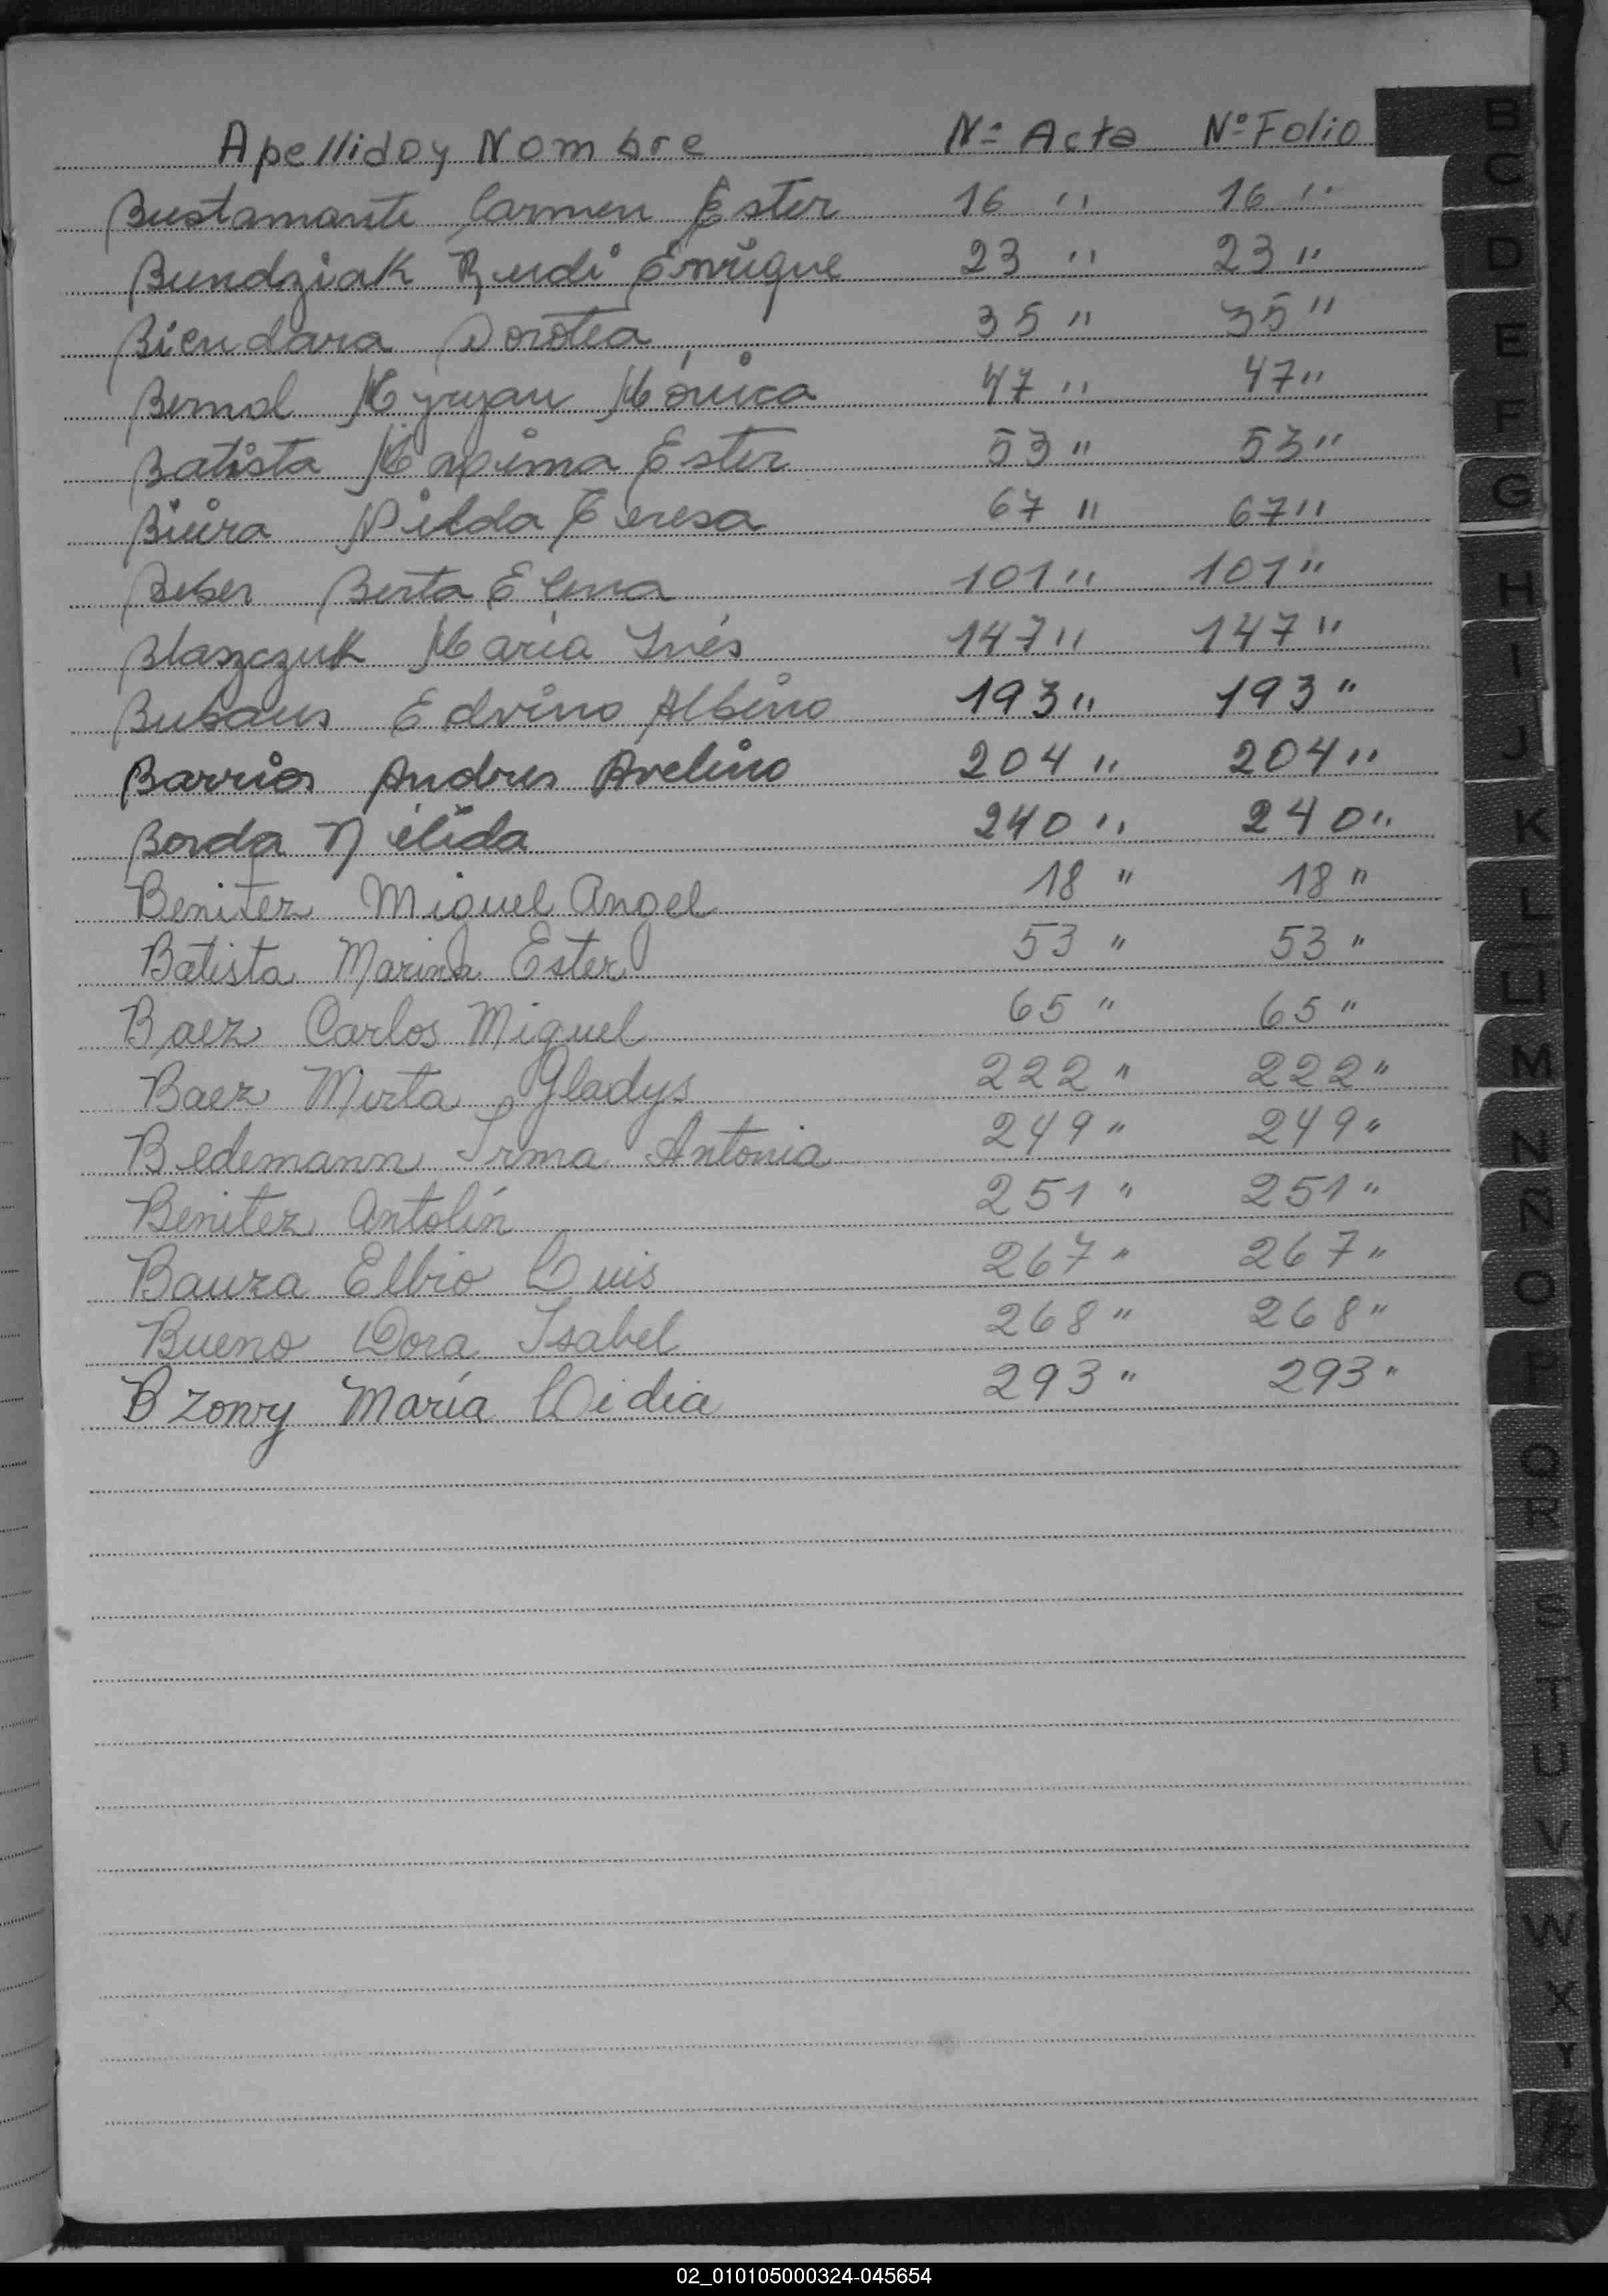 Apellido y Nombre Nº Acta Nº Folio
Bustamante Carmen Ester 16 " 16 "
Bundziak Rudi Enrique 23 " 23 "
Biendara Dorotea 35 " 35 "
Bernal Myryan Mónica 47 " 47 "
Batista Maxima Ester 53 " 53 "
Nilda Teresa 67 " 67 "
Berta Elena 101 " 101 "
Blaszczuk María Inés 147 " 147 "
Bubaus Edvino Albino 193 " 193 "
Barrios Andres Avelino 204 " 204 "
Borda Nélida 240 " 240 "
Benitez Miguel Angel 18 " 18 "
Batista Marina Ester 53 " 53 "
Baez Carlos Miguel 65 " 65 "
Baez Mirta Gladys 222 " 222 "
Bedemann Irma Antonia 249 " 249 "
Benitez Antolín 251 " 251 "
Bauza Elbio Luis 267 " 267 "
Bueno Dora Isabel 268 " 268 "
Bzonvy María Lidia 293 " 293 "
B
C
D
E
F
G
H
I
J
K
L
LL
M
N
Ñ
O
P
Q
R
S
T
U
V
W
X
Y
Z
02_010105000324-045654